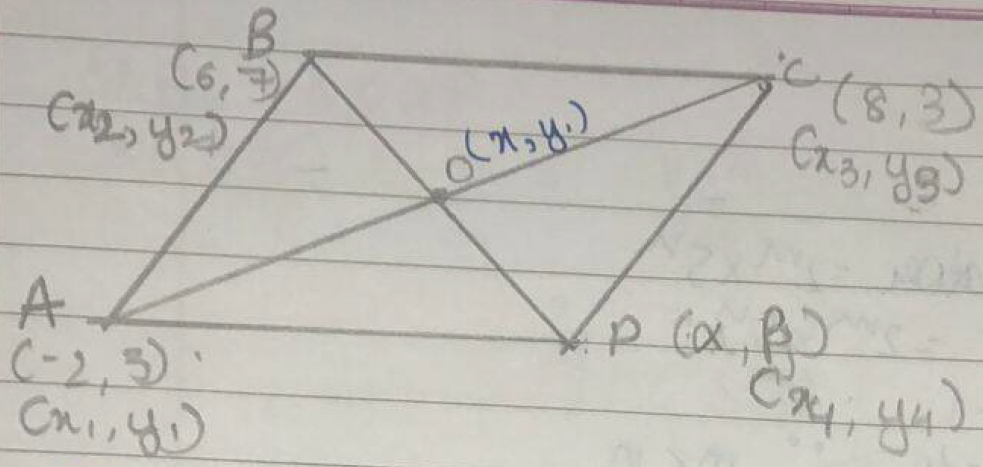 B
(6, 7)
(x2, y2)
C (8, 3)
(x3, y3)
O (x, y)
A
(-2, 3)
(x1, y1)
P (α, β)
(x4, y4)